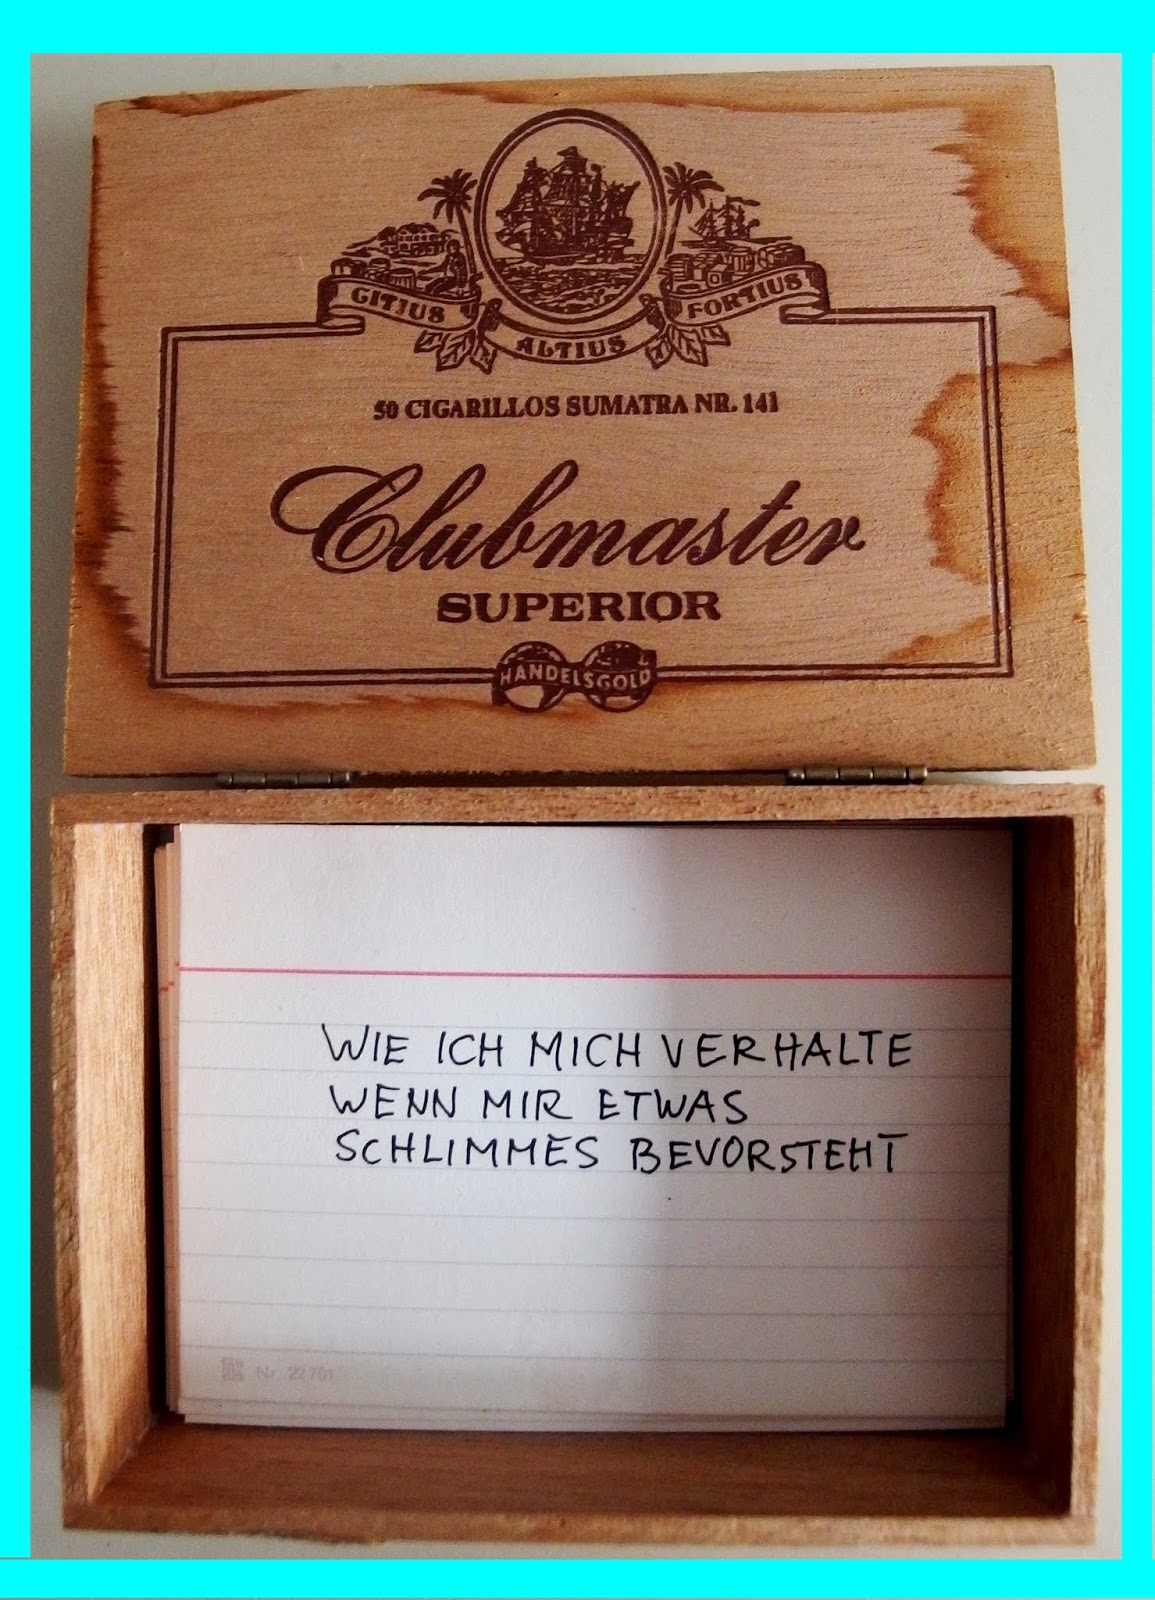 CITIUS
ALTIUS
FORTIUS
50 CIGARILLOS SUMATRA NR. 141
Clubmaster
SUPERIOR
HANDELSGOLD
WIE ICH MICH VERHALTE
WENN MIR ETWAS
SCHLIMMES BEVORSTEHT
Nr. 22 701